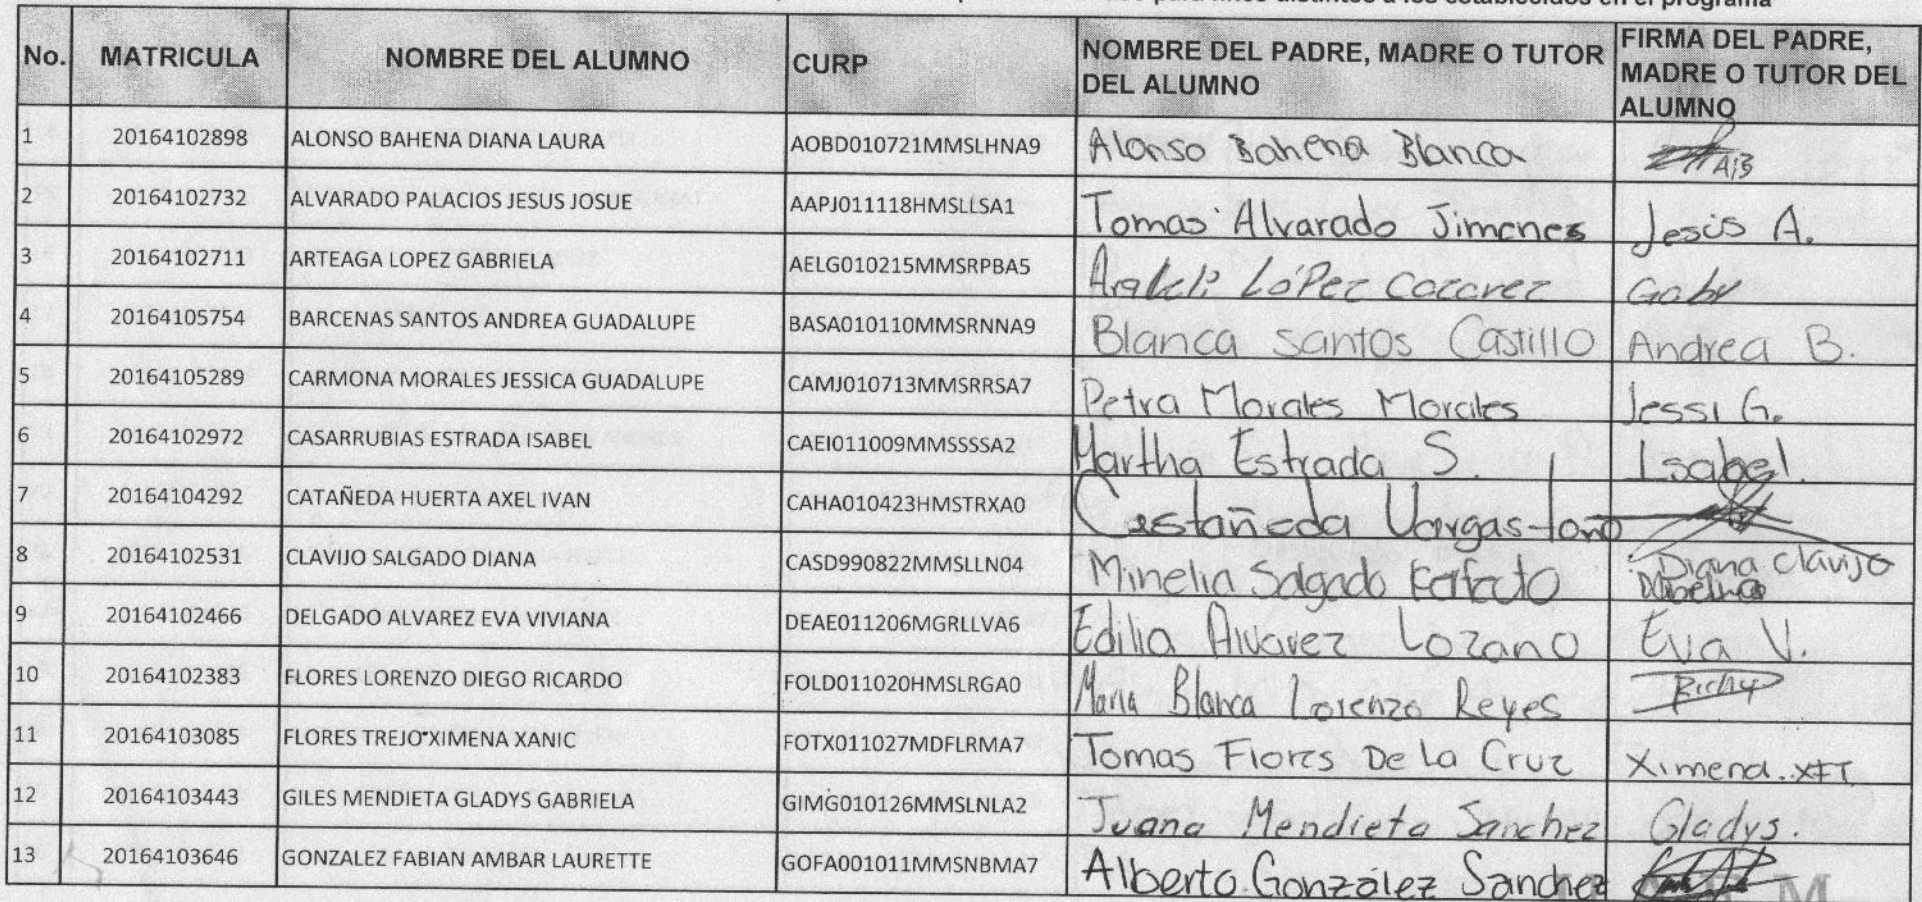 para fines distintos a los establecidos en el programa
No. MATRICULA NOMBRE DEL ALUMNO CURP NOMBRE DEL PADRE, MADRE O TUTOR DEL ALUMNO FIRMA DEL PADRE, MADRE O TUTOR DEL ALUMNO
1 20164102898 ALONSO BAHENA DIANA LAURA AOBD010721MMSLHNA9 Alonso Bahena Blanca
2 20164102732 ALVARADO PALACIOS JESUS JOSUE AAPJ011118HMSLLSA1 Tomas Alvarado Jimenes Jesús A.
3 20164102711 ARTEAGA LOPEZ GABRIELA AELG010215MMSRPBA5 López Gaby
4 20164105754 BARCENAS SANTOS ANDREA GUADALUPE BASA010110MMSRNNA9 Blanca Santos Castillo Andrea B.
5 20164105289 CARMONA MORALES JESSICA GUADALUPE CAMJ010713MMSRRSA7 Petra Morales Morales Jessi G.
6 20164102972 CASARRUBIAS ESTRADA ISABEL CAEI011009MMSSSSA2 Martha Estrada S. Isabel.
7 20164104292 CATAÑEDA HUERTA AXEL IVAN CAHA010423HMSTRXA0 Castañeda Vargas toño
8 20164102531 CLAVIJO SALGADO DIANA CASD990822MMSLLN04 Minelia Salgado Diana Clavijo
9 20164102466 DELGADO ALVAREZ EVA VIVIANA DEAE011206MGRLLVA6 Edilia Alvarez Lozano Eva V.
10 20164102383 FLORES LORENZO DIEGO RICARDO FOLD011020HMSLRGA0 Maria Blanca Lorenzo Reyes Richy
11 20164103085 FLORES TREJO XIMENA XANIC FOTX011027MDFLRMA7 Tomas Flores De La Cruz Ximena. XFT
12 20164103443 GILES MENDIETA GLADYS GABRIELA GIMG010126MMSLNLA2 Juana Mendieta Sanchez Gladys.
13 20164103646 GONZALEZ FABIAN AMBAR LAURETTE GOFA001011MMSNBMA7 Alberto González Sanchez